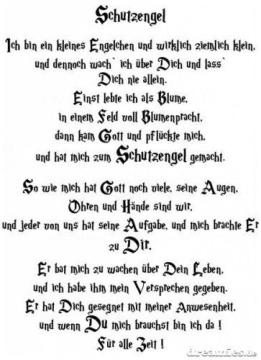 Schutzengel
Ich bin ein kleines Engelchen und wirklich ziemlich klein,
und dennoch wach` ich über Dich und lass`
Dich nie allein.
Einst lebte ich als Blume,
in einem Feld voll Blumenpracht,
dann kam Gott und pflückte mich,
und hat mich zum Schutzengel gemacht.
So wie mich hat Gott noch viele, seine Augen,
Ohren und Hände sind wir,
und jeder von uns hat seine Aufgabe, und mich brachte Er
zu Dir.
Er bat mich zu wachen über Dein Leben,
und ich habe ihm mein Versprechen gegeben.
Er hat Dich gesegnet mit meiner Anwesenheit,
und wenn Du mich brauchst bin ich da !
Für alle Zeit !
dreamies.de